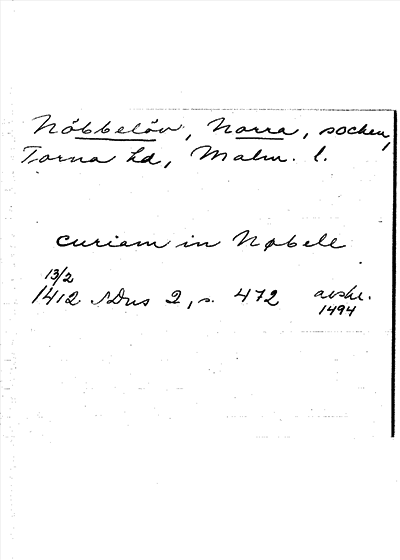 Nöbbelöv, Norra, socken,
Torna hd, Malm. l.
curiam in Nøbell
13/2
1412 SDns 2, s. 472 avskr.
1494